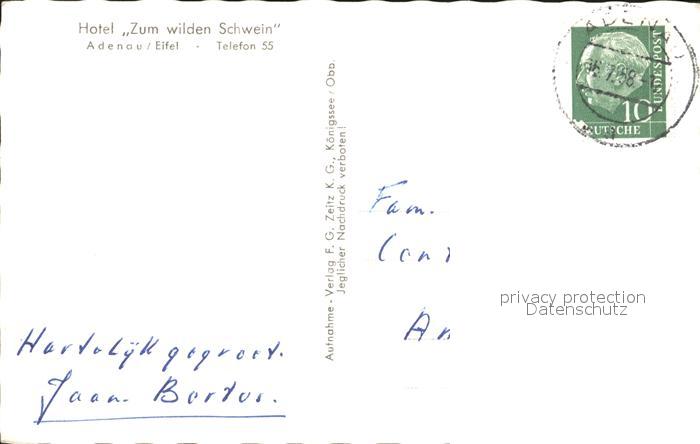 Hotel „Zum wilden Schwein"
Adenau / Eifel - Telefon 55
ADENAU
10
BUNDESPOST
DEUTSCHE
Aufnahme - Verlag F. G. Zeitz K. G., Königssee / Obb.
Jeglicher Nachdruck verboten!
Fam.
An
privacy protection
Datenschutz
Hartelijk gegroet.
Jaan. Bortus.